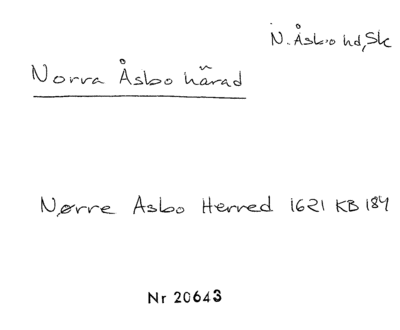 N. Åsbo hd, Sk
Norra Åsbo härad
Nørre Asbo Herred 1621 KB 184
Nr 20643